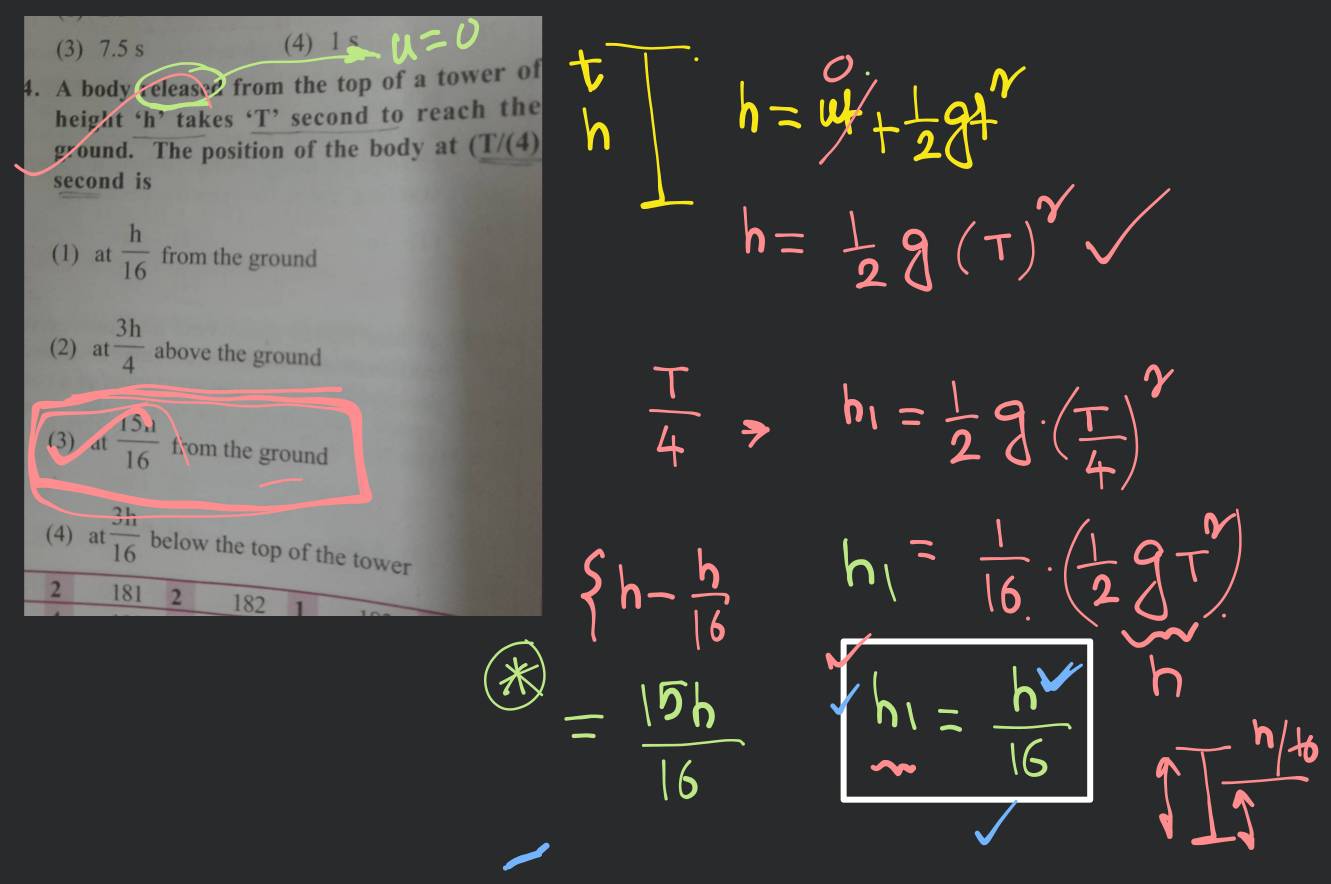 (3) 7.5 s (4) 1 s
u=0
4. A body released from the top of a tower of
height 'h' takes 'T' second to reach the
ground. The position of the body at (T/(4)
second is
(1) at h/16 from the ground
(2) at 3h/4 above the ground
(3) at 15h/16 from the ground
(4) at 3h/16 below the top of the tower
2 181 2 182 1
t
h
0
h = ut + 1/2 gt²
h = 1/2 g (T)²
T/4 → h1 = 1/2 g · (T/4)²
h1 = 1/16 · (1/2 g T²)
h
{ h - h/16
= 15h/16
h1 = h/16
h/16